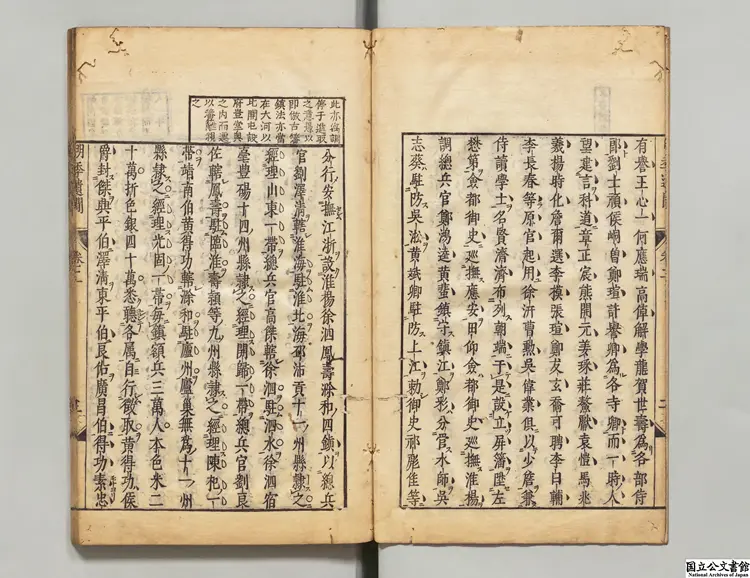 有譽王心一何應瑞高倬解學龍賀世壽爲各部侍
郎劉士禎侯峒曾鄭瑄計譽卿爲各寺卿而一時人
望建言科道章正宸熊開元姜埰莊鰲獻袁愷馬兆
義楊時化詹爾選李模張瑄鄭友玄喬可聘李日輔
李長春等原官起用徐汧曹勲吳偉業俱以少詹兼
侍讀學士名賢濟濟布列朝端于是設立屏藩陞左
懋第僉都御史巡撫應安田仰僉都御史巡撫淮楊
調總兵官鄭鴻逵黃蜚鎮守鎮江鄭彩分管水師吳
志葵駐防吳淞黃斌卿駐防上江勅御史祁彪佳等
此亦從調
停于進取
之意
即倣古藩
鎮法亦當
在大河以
北開屯設
府堂奧
之內而
以藩籬視
之
分行安撫江浙設淮楊徐泗鳳壽滁和四鎮以總兵
官劉澤清轄淮海駐淮北海邳沛十一州縣隸之
經理山東一帶總兵官高傑轄徐泗駐泗水徐泗宿
亳豊碭十四州縣隸之經理開歸一帶總兵官劉良
佐轄鳳壽駐臨淮壽頴等九州縣隸之經理陳杞一
帶靖南伯黃得功轄滁和駐廬州廬巢無爲十一州
縣隸之經理光固一帶毎鎮額兵三萬人本色米二
十萬折色銀四十萬悉聽各属自行徵取黃得功侯
爵封傑興平伯澤清東平伯良佑廣昌伯得功素忠
明季遺聞 卷二
国立公文書館
National Archives of Japan